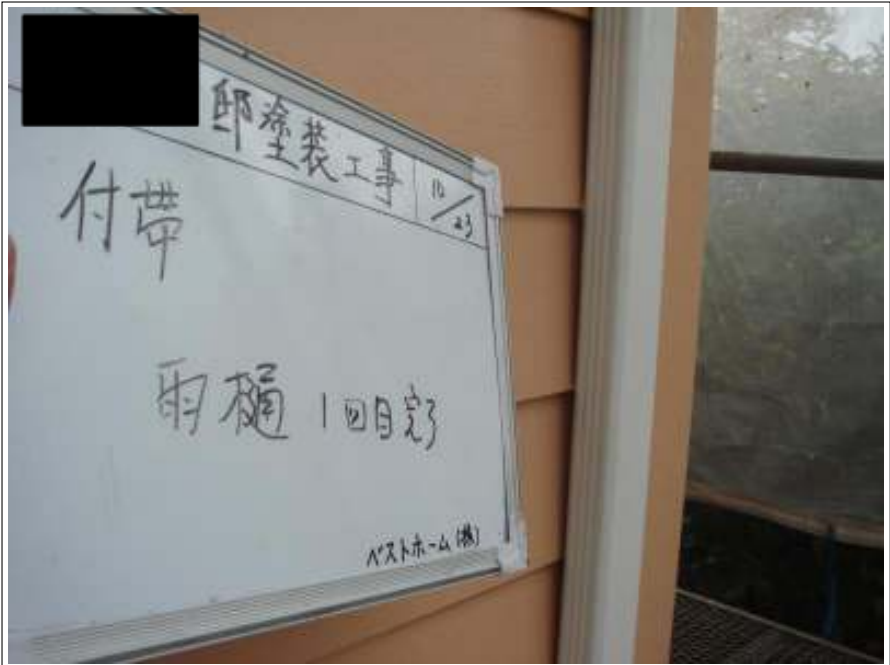 邸塗装工事 10/23
付帯
雨樋 1回目完了
ベストホーム(株)